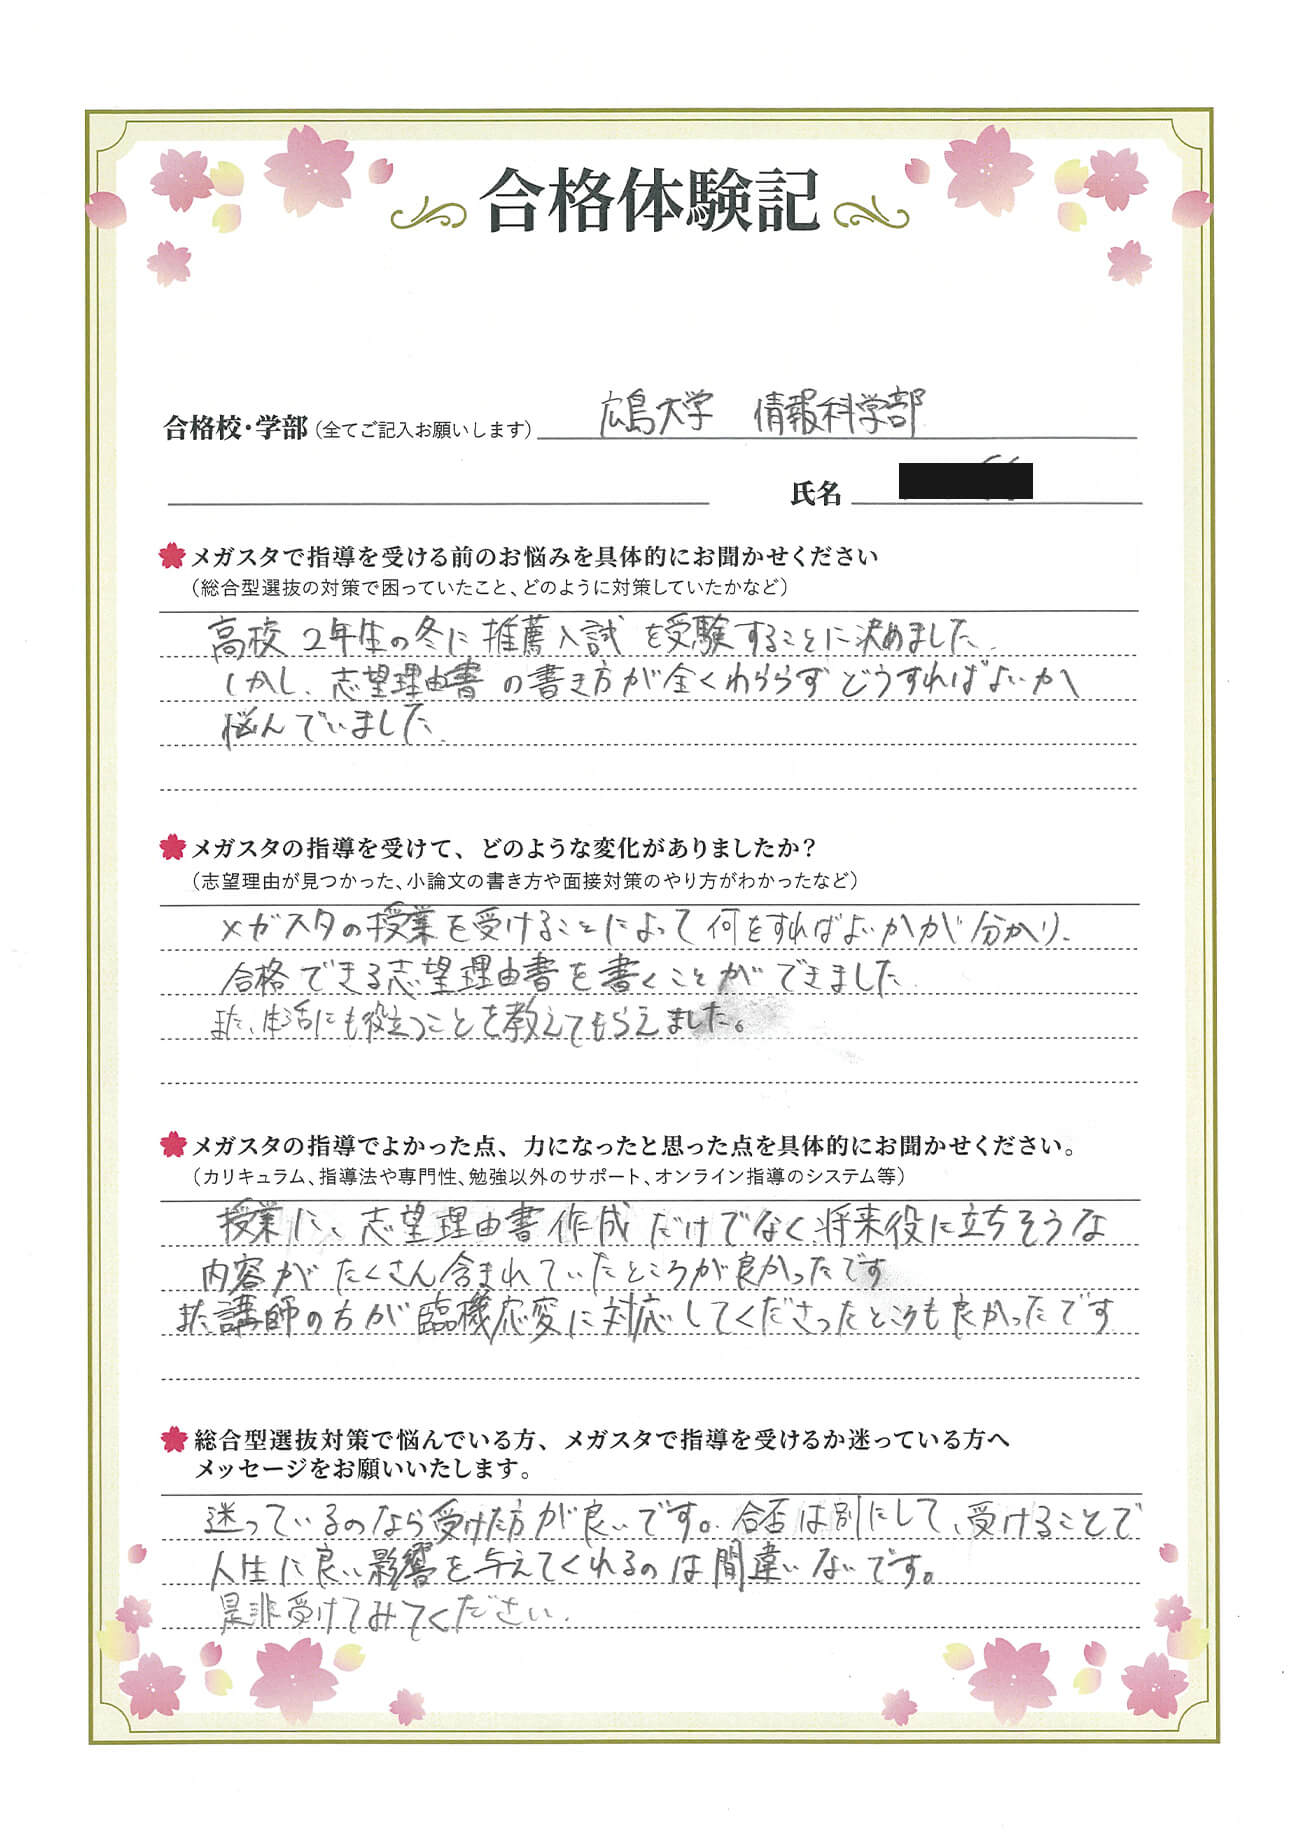 合格体験記
合格校・学部（全てご記入お願いします） 広島大学　情報科学部
氏名
メガスタで指導を受ける前のお悩みを具体的にお聞かせください
（総合型選抜の対策で困っていたこと、どのように対策していたかなど）
高校2年生の冬に推薦入試を受験することに決めました。
しかし、志望理由書の書き方が全くわららずどうすればよいか
悩んでいました。
メガスタの指導を受けて、どのような変化がありましたか？
（志望理由が見つかった、小論文の書き方や面接対策のやり方がわかったなど）
メガスタの授業を受けることによって何をすればよいかが分かり、
合格できる志望理由書を書くことができました。
また、生活にも役立つことを教えてもらえました。
メガスタの指導でよかった点、力になったと思った点を具体的にお聞かせください。
（カリキュラム、指導法や専門性、勉強以外のサポート、オンライン指導のシステム等）
授業に、志望理由書作成だけでなく将来役に立ちそうな
内容がたくさん含まれていたところが良かったです
また講師の方が臨機応変に対応してくださったところも良かったです
総合型選抜対策で悩んでいる方、メガスタで指導を受けるか迷っている方へ
メッセージをお願いいたします。
迷っているのなら受けた方が良いです。合否は別にして、受けることで
人生に良い影響を与えてくれるのは間違いないです。
是非受けてみてください。